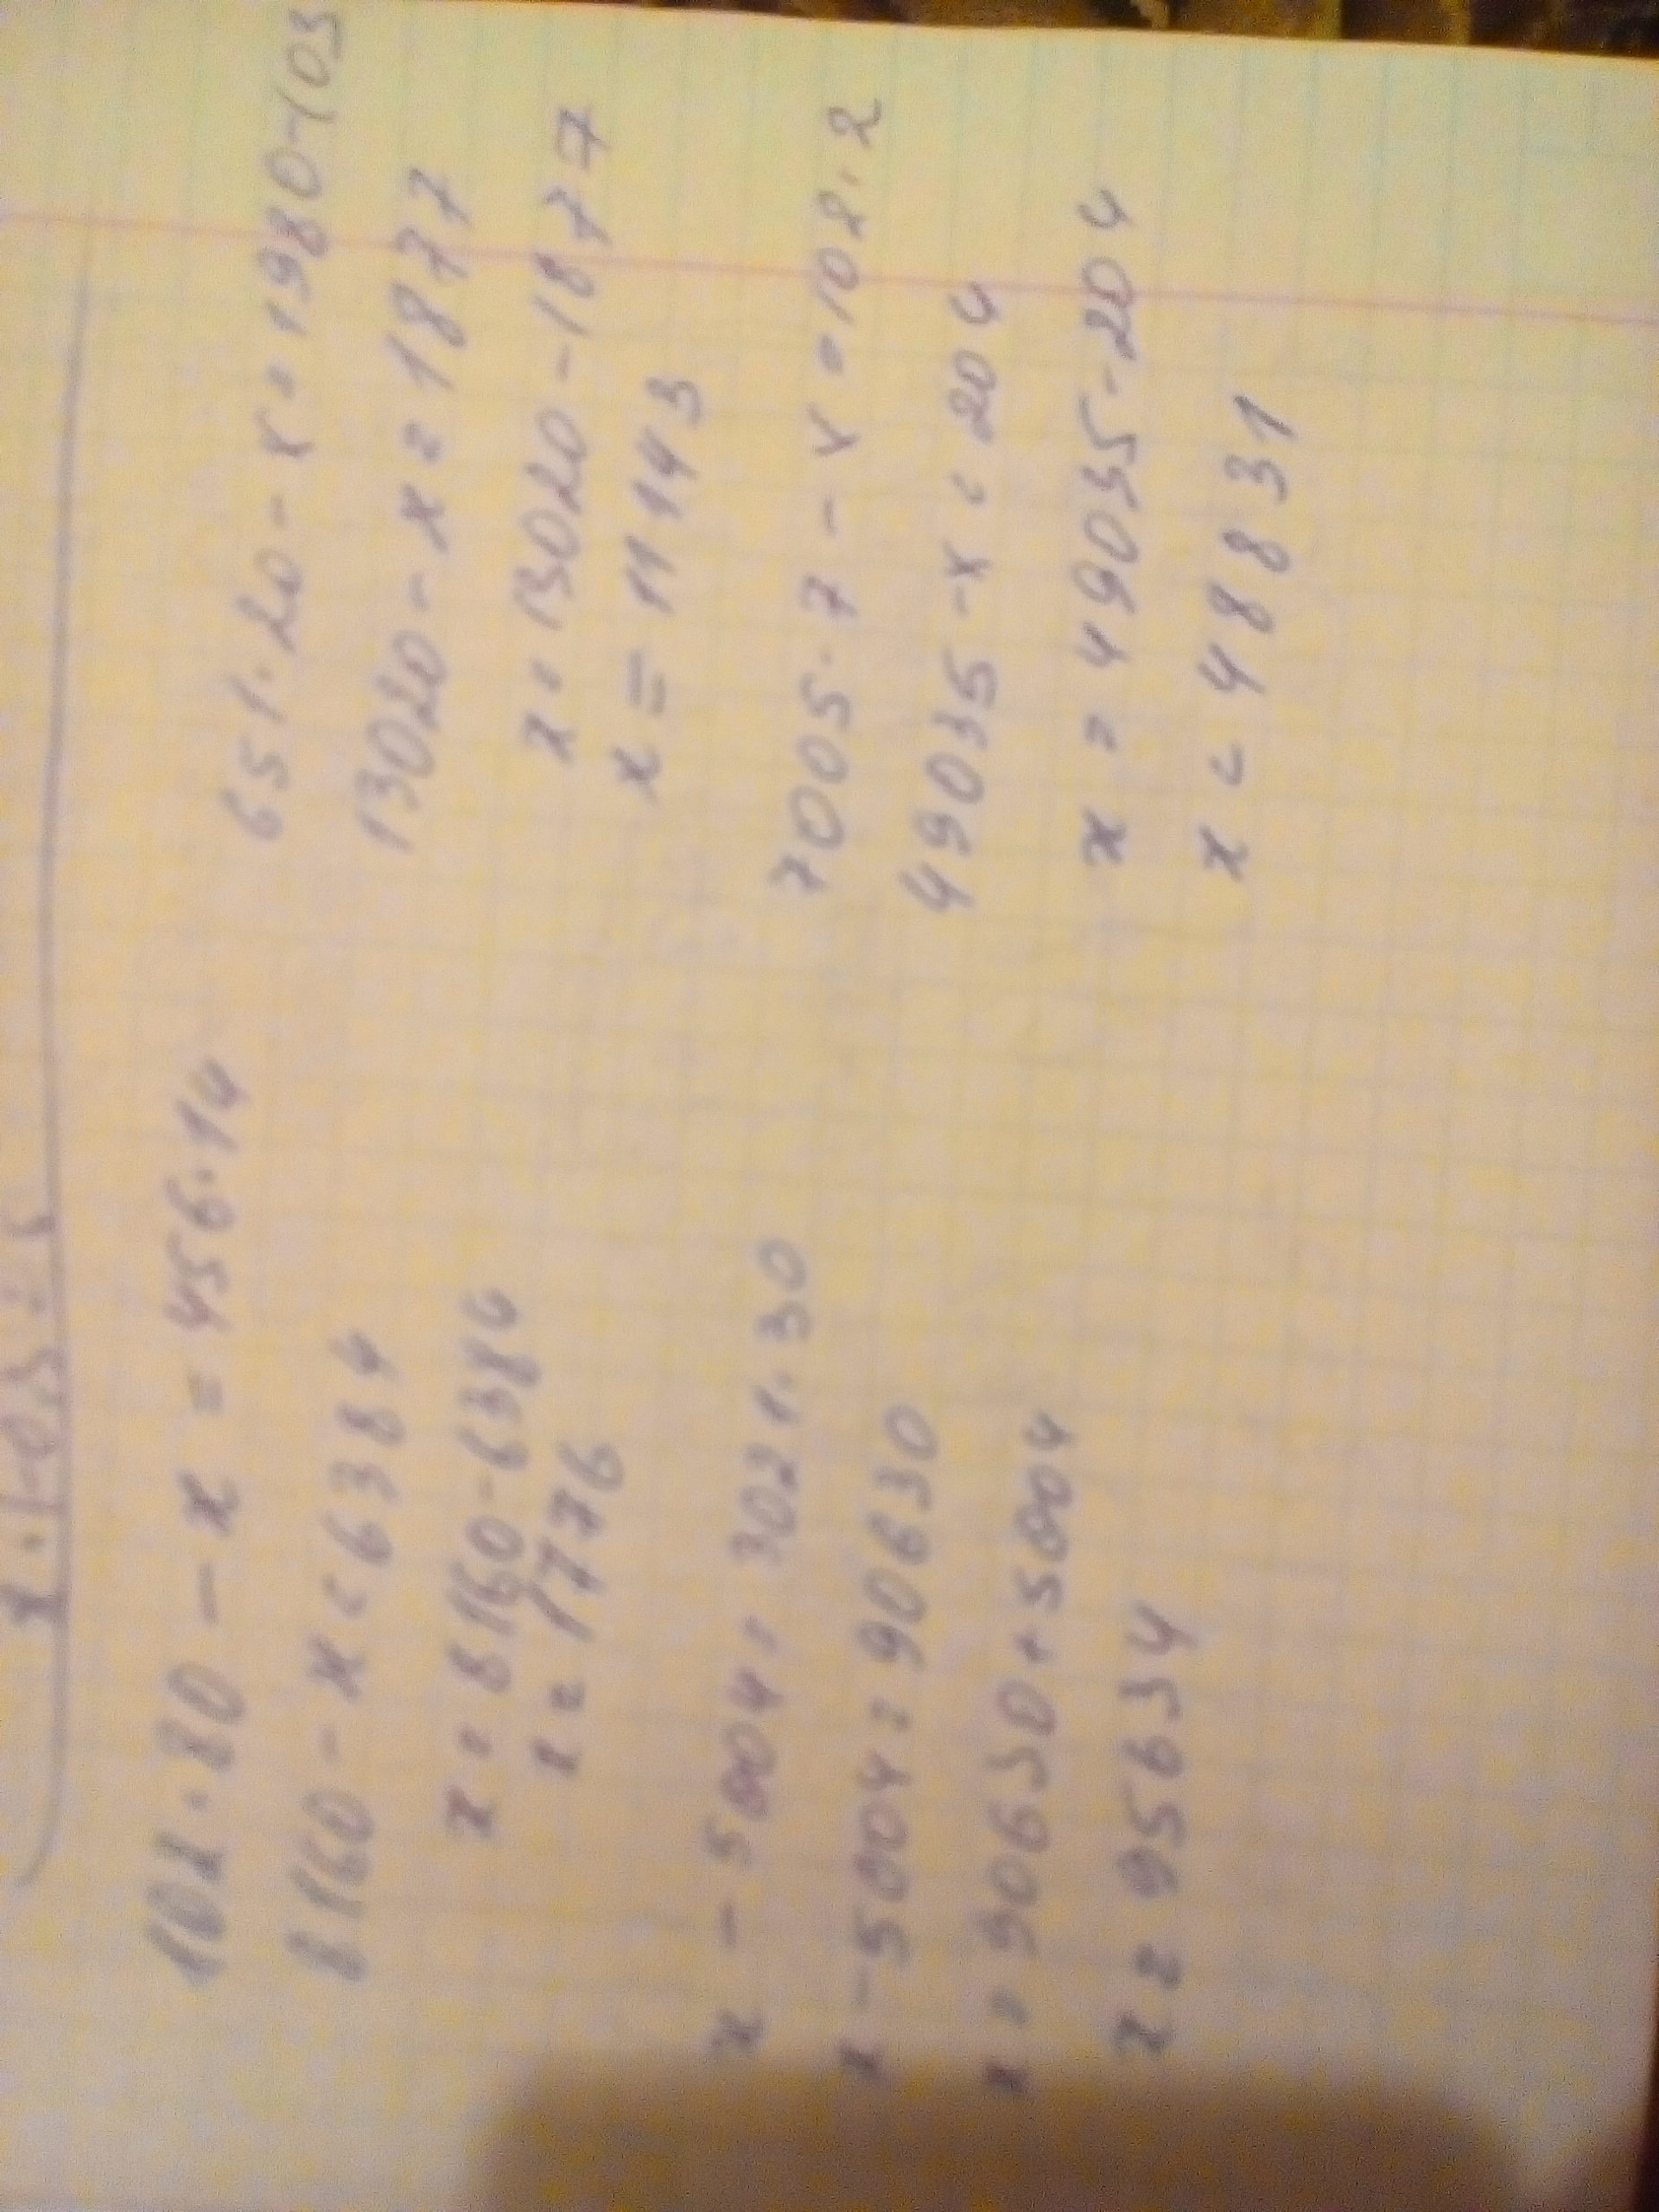 102·80 - x = 456·14
8160 - x = 6384
x = 8160 - 6384
x = 1776
x - 5004 = 3021·30
x - 5004 = 90630
x = 90630 + 5004
x = 95634
651·20 - x = 1980-103
13020 - x = 1877
x = 13020 - 1877
x = 11143
7005·7 - x = 102·2
49035 - x = 204
x = 49035 - 204
x = 48831